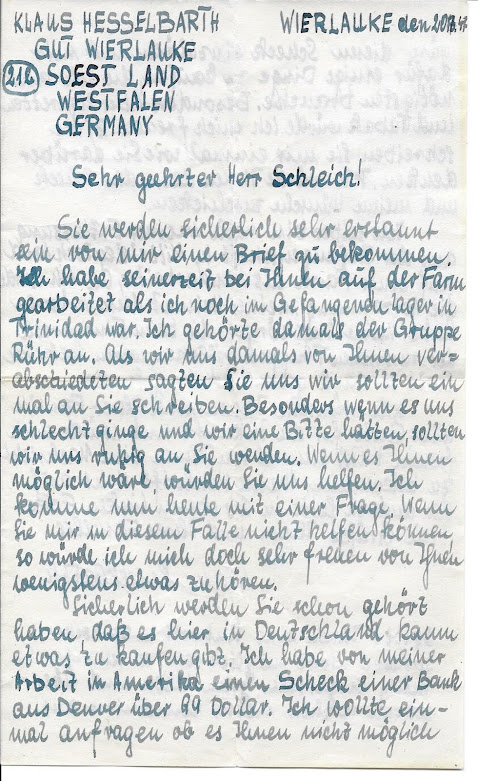 KLAUS HESSELBARTH WIERLAUKE den
GUT WIERLAUKE
(21b) SOEST LAND
WESTFALEN
GERMANY
Sehr geehrter Herr Schleich!
Sie werden sicherlich sehr erstaunt
sein von mir einen Brief zu bekommen.
Ich habe seinerzeit bei Ihnen auf der Farm
gearbeitet als ich noch im Gefangenenlager in
Trinidad war. Ich gehörte damals der Gruppe
Rühr an. Als wir uns damals von Ihnen ver=
abschiedeten sagten Sie uns wir sollten ein
mal an Sie schreiben. Besonders wenn es uns
schlecht ginge und wir eine Bitte hätten, sollten
wir uns ruhig an Sie wenden. Wenn es Ihnen
möglich wäre, würden Sie uns helfen. Ich
komme nun heute mit einer Frage. Wenn
Sie mir in diesem Falle nicht helfen können
so würde ich mich doch sehr freuen von Ihnen
wenigstens etwas zu hören.
Sicherlich werden Sie schon gehört
haben daß es hier in Deutschland kaum
etwas zu kaufen gibt. Ich habe von meiner
Arbeit in Amerika einen Scheck einer Bank
aus Denver über 99 Dollar. Ich wollte ein-
mal anfragen ob es Ihnen nicht möglich